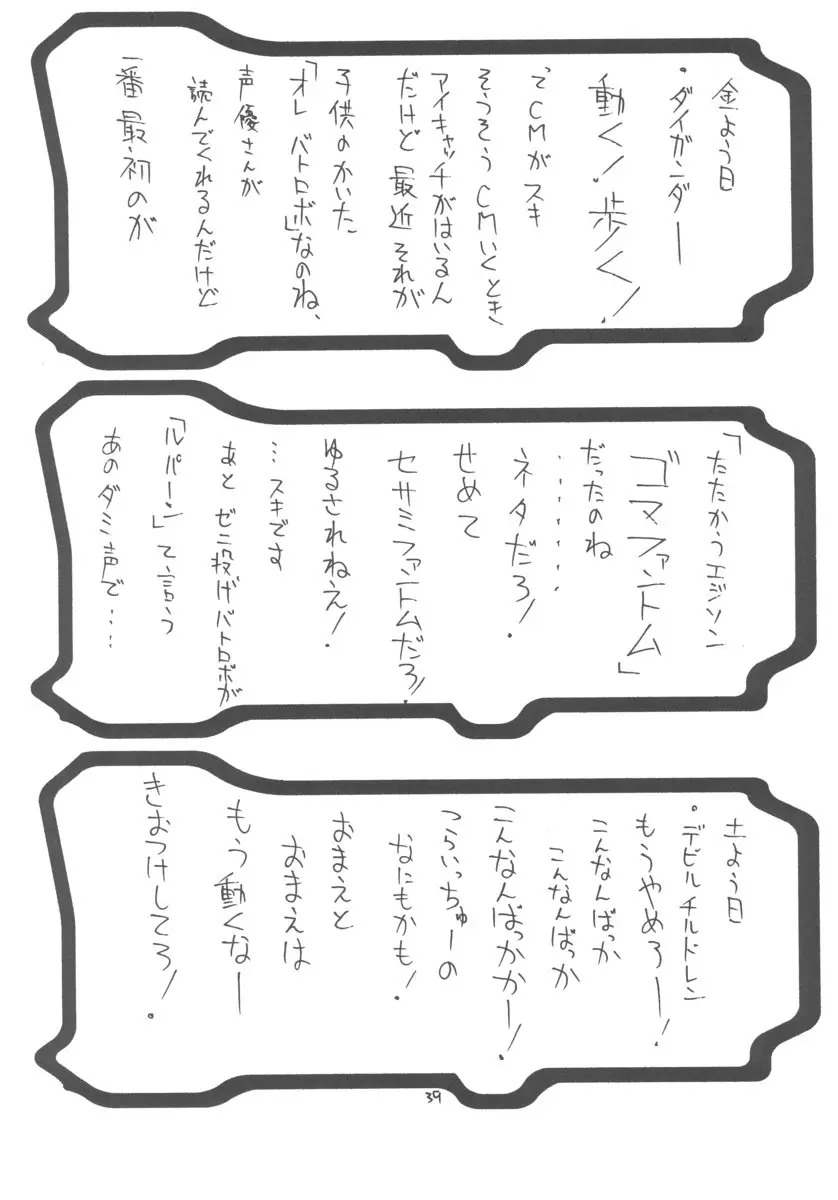 金よう日
・ダイガンダー
動く!歩く!
でCMがスキ
そうそうCMいくとき
アイキャッチがはいるん
だけど最近それが
子供のかいた
「オレバトロボ」なのね、
声優さんが
読んでくれるんだけど
一番最初のが
「たたかうエジソン
ゴマファントム」
だったのね
・・・・・・・
ネタだろ!
せめて
セサミファントムだろ!
ゆるされねえ!
…スキです
あとゼニ投げバトロボが
「ルパーン」て言う
あのダミ声で‥‥
土よう日
・デビルチルドレン
もうやめろー!
こんなんばっか
こんなんばっか
こんなんばっかかー!
つらいっちゅーの
なにもかも!
おまえと
おまえは
もう動くなー
きおつけしてろ!
39